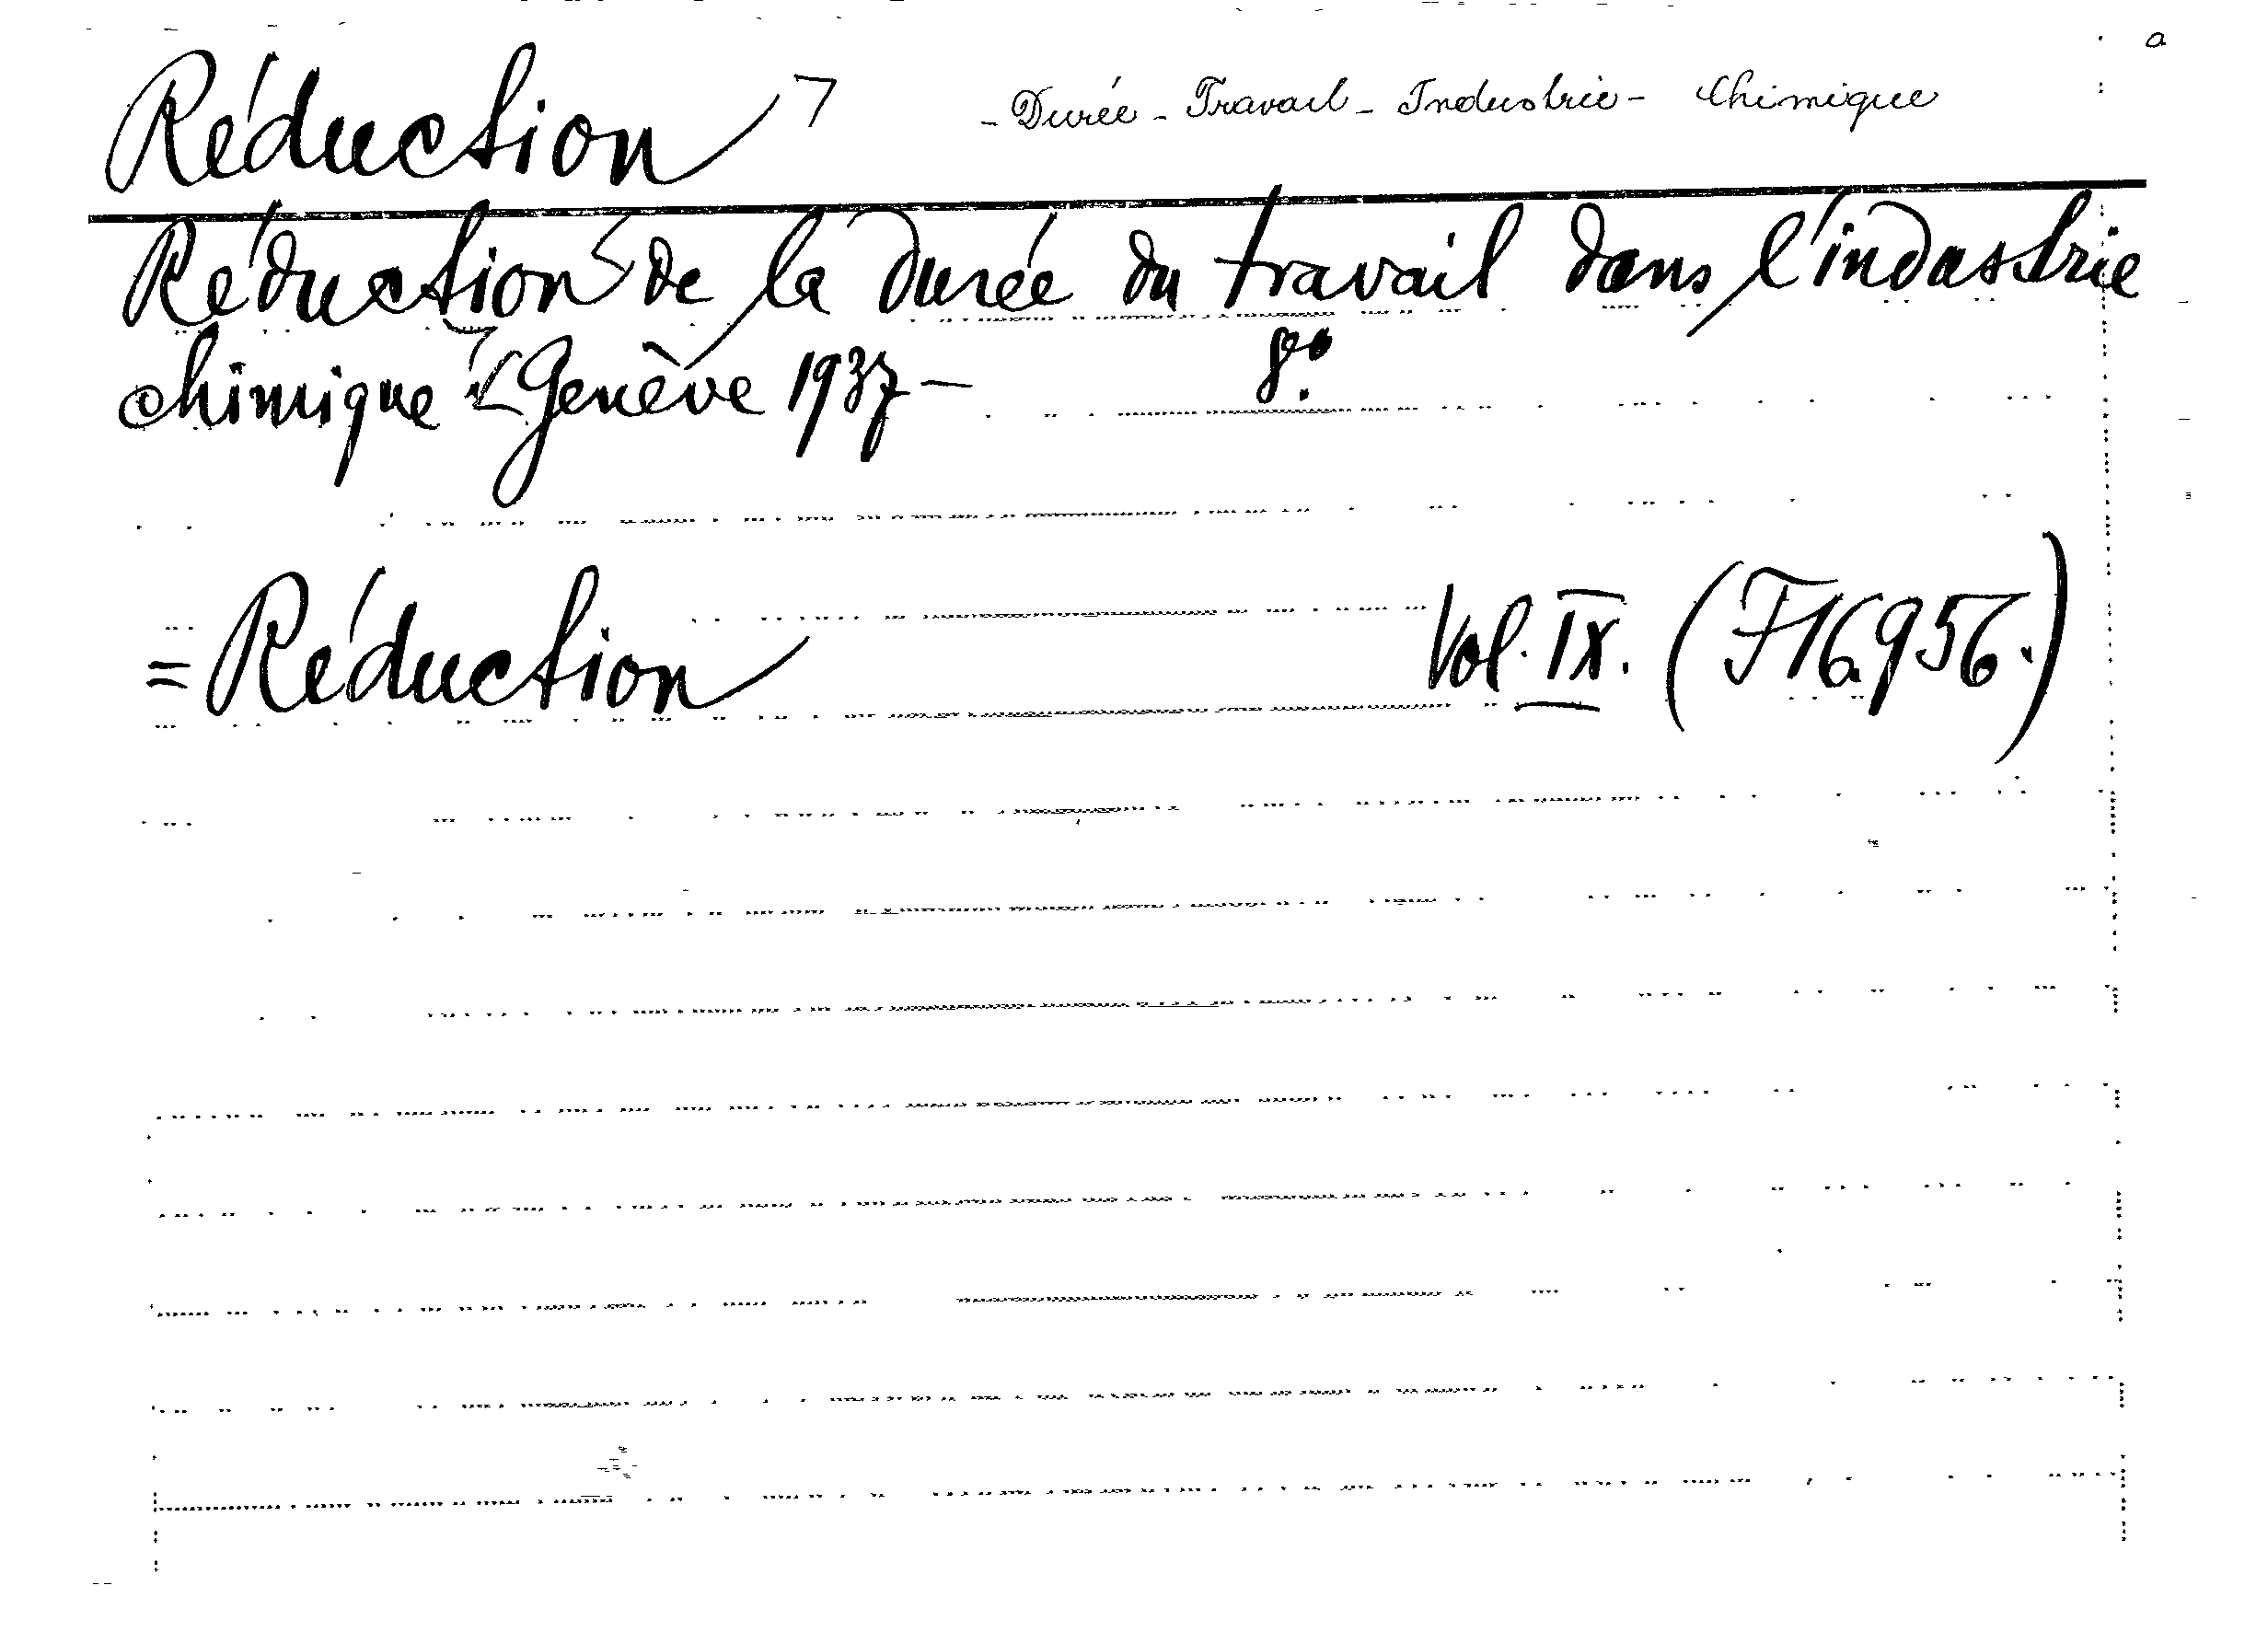 a
Réduction - Durée - Travail - Industrie - Chimique
Réduction de la Durée du travail dans l'industrie
chimique Genève 1937 - 8º.
= Réduction Vol. IX. (F16956.)